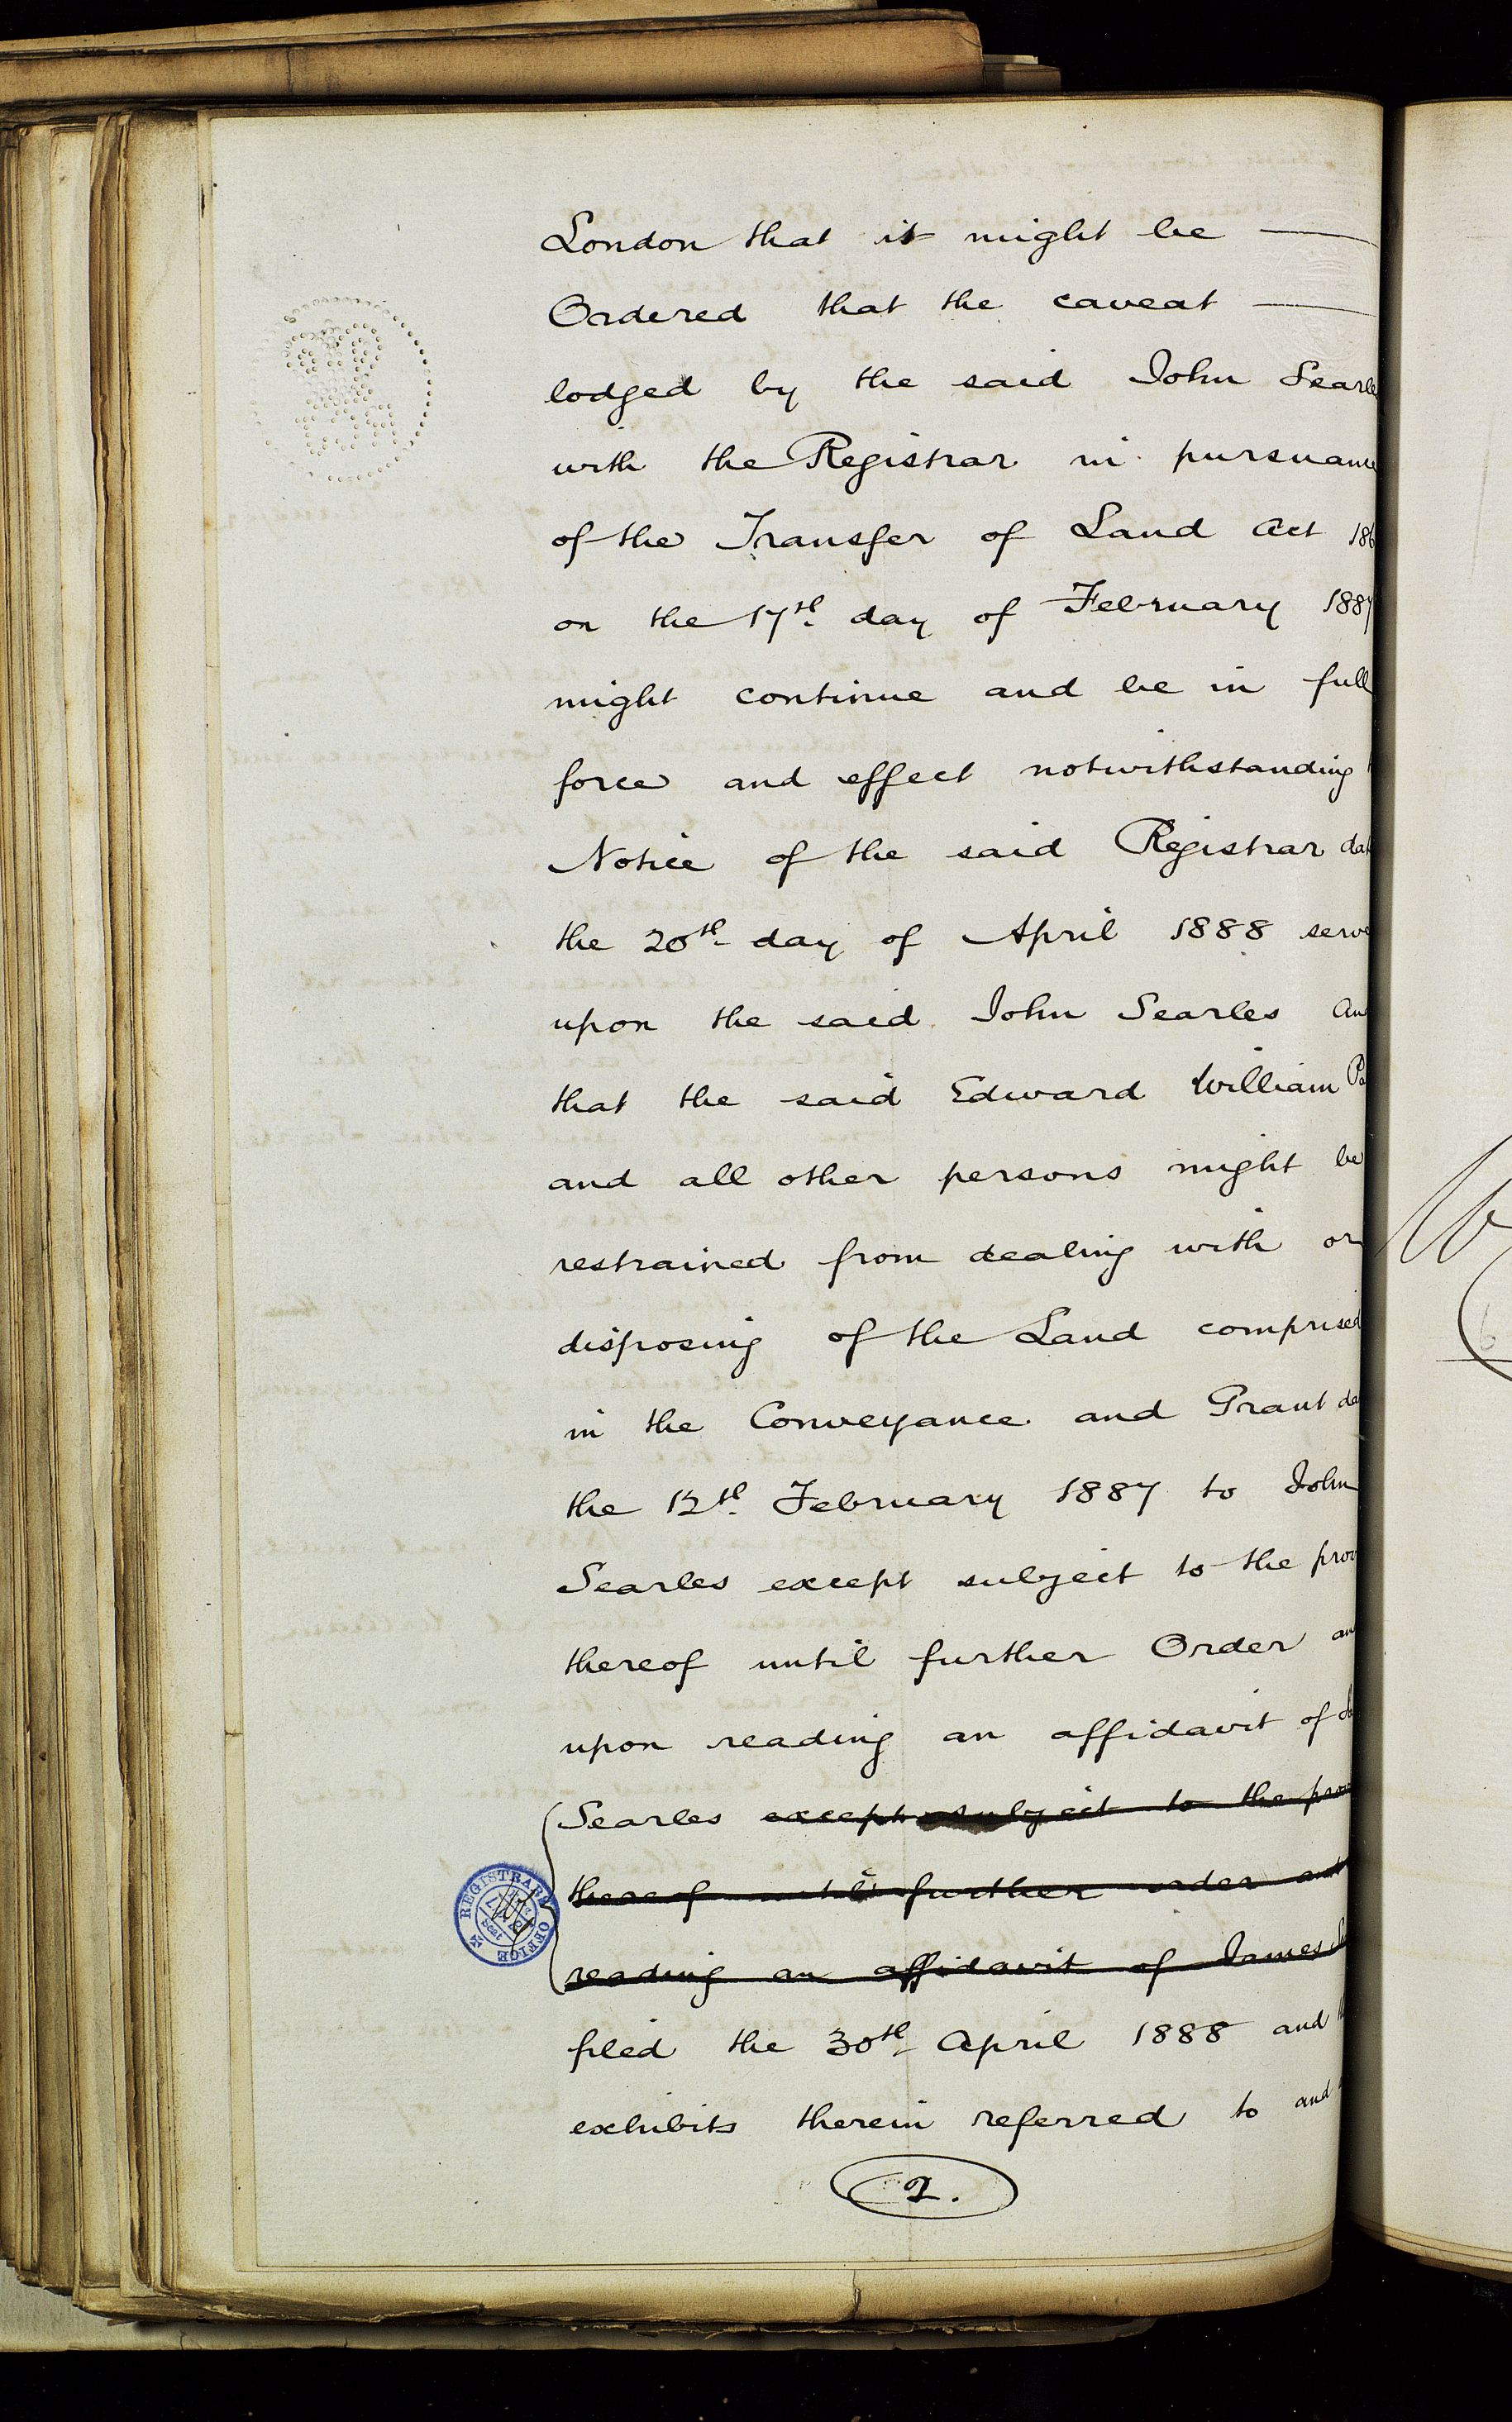 London that it might be
Ordered that the caveat
lodged by the said John Searle
with the Registrar in pursuan
of the Transfer of Land Act 186
on the 17th. day of February 1887
might continue and be in full
force and effect notwithstanding
Notice of the said Registrar dat
the 20th day of April 1888 serve
upon the said John Searles an
that the said Edward William Pa
and all other persons might be
restrained from dealing with or
disposing of the Land comprised
in the Conveyance and Grant da
the 12th. February 1887 to John
Searles except subject to the prov
thereof until further Order an
upon reading an affidavit of
Searles except subject to the prov
thereof until further order and
reading an affidavit of James
filed the 30th April 1888 and
exhibits therein referred to and
2.
REGISTRAR'S OFFICE